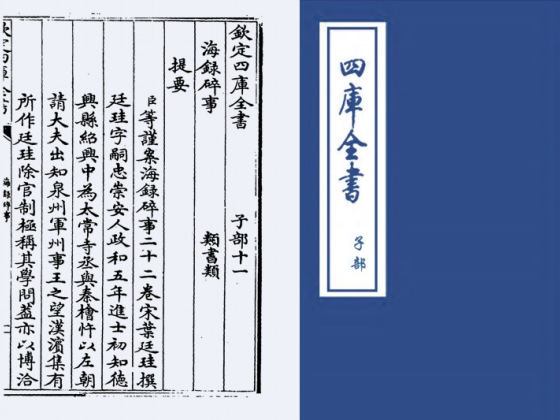 欽定四庫全書 子部十一
海録碎事 類書類
提要
臣等謹案海録碎事二十二卷宋葉廷珪撰
廷珪字嗣忠崇安人政和五年進士初知德
興縣紹興中為太常寺丞與秦檜忤以左朝
請大夫出知泉州軍州事王之望漢濱集有
所作廷珪除官制極稱其學問葢亦以博洽
欽定四庫全書
海録碎事
四庫全書
子部